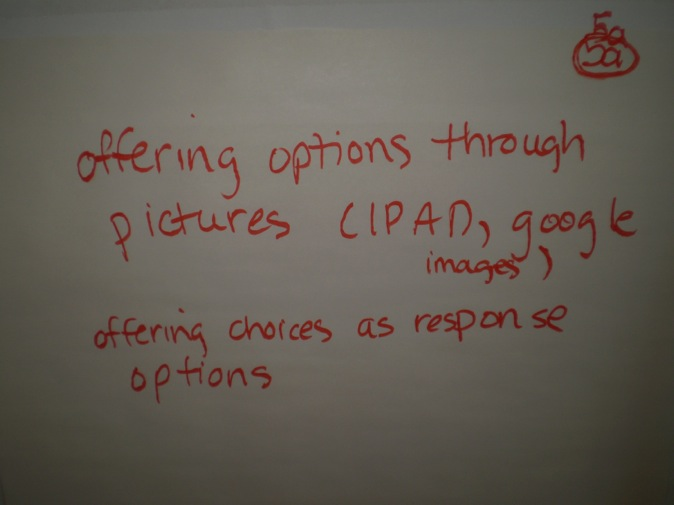 5a
5a
offering options through
pictures (IPAD, google
images)
offering choices as response
options